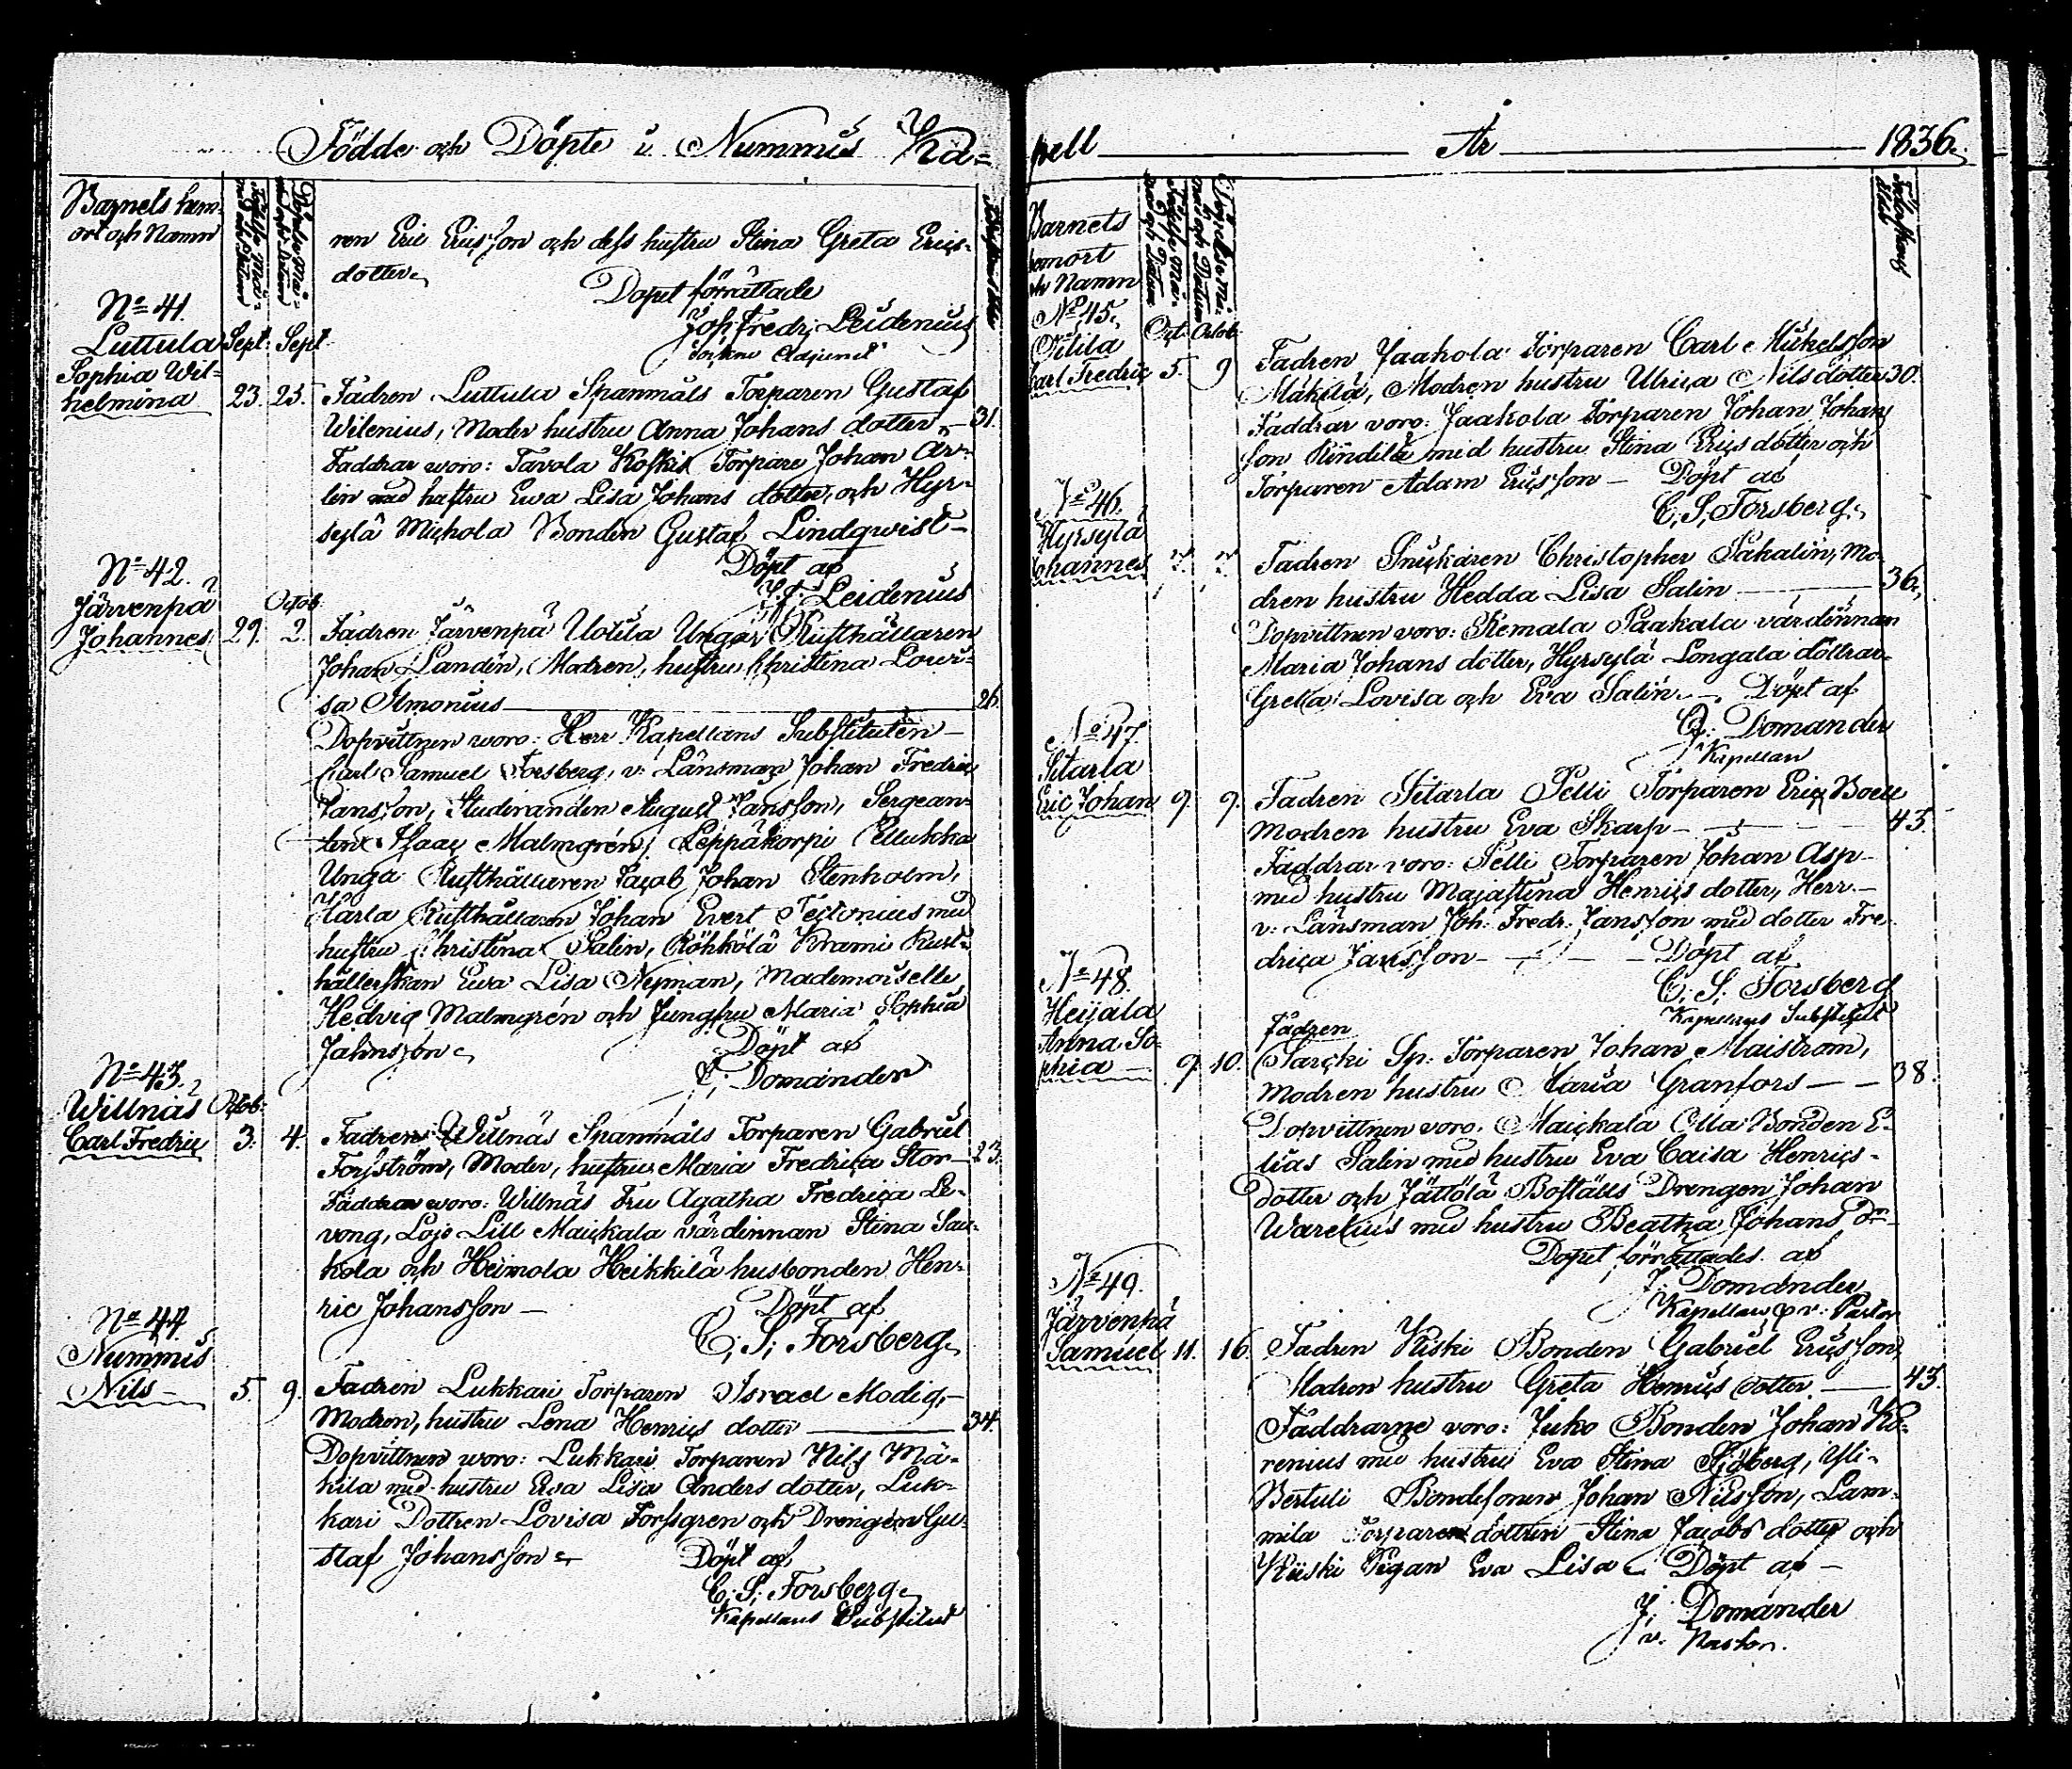 Födde och Döpte i Nummis Ka=
Barnets hem=
ort och Namn
ren Eric Ericsson och dess hustru Stina Greta Erics=
dotter.
Dopet förrättade
Joh: Fredr: Leidenius
Sockne Adjunct
No 41.
Luttula Sept. Sept.
Sophia Wil=
helmina 23. 25. Fadren Luttula Spanmåls Torparen Gustaf
Wilenius, Moder hustru Anna Johans dotter – 31.
Faddrar woro: Tavola Koskis Torpare Johan Ar=
lin med hustru Ewa Lisa Johans dotter, och Hyr=
sylä Michola Bonden Gustaf Lindqwist –
Döpt af
J. F. Leidenius
No 42.
Järvenpä Octob.
Johannes 29. 2. Fadren Järvenpä Uotila Ungar Rusthållaren
Johan Landén, Modren, hustru Christina Lowi=
sa Ilmonius 26.
Dopvittnen woro: Herr Kapellans Substituten –
Carl Samuel Forsberg, v: Länsman Johan Fredric
Jansson, Studeranden August Jansson, Sergean=
ten Isaac Malmgrén, Leppäkorpi Pellukka
Unga Rusthållaren Jacob Johan Stenholm,
Harla Rusthållaren Johan Evert Tectonius med
hustru Christina Salin, Röhkölä Krami Rust=
hållerskan Ewa Lisa Nyman, Mademoiselle
Hedvig Malmgrén och Jungfru Maria Sophia
Jahnsson. Döpt af
J: Domander
No 43.
Willnäs Octob:
Carl Fredric 3. 4. Fadren Willnäs Spanmåls Torparen Gabriel
Forsström, Moder, hustru Maria Fredrica Stor – 23.
Faddrar woro: Willnäs Fru Agatha Fredrica Le=
vong, Lojo Lill Maickala värdinnan Stina Sau=
kola och Heimola Heikkilä husbonden Hen=
ric Johansson – Döpt af
C: S: Forsberg.
No 44.
Nummis
Nils – 5. 9. Fadren Lukkari Torparen Israel Modig, –
Modren, hustru Lena Henrics dotter 34.
Dopvittnen woro: Lukkari Torparen Nils Mä=
kilä med hustru Ewa Lisa Anders dotter, Luk=
kari Dottren Lovisa Forssgren och Drengen Gu=
staf Johansson. Döpt af
C: S: Forsberg.
Kapellans Substitut
pell År 1836.
Barnets
hemort
och Namn
No 45.
Oitila Oct. Octob:
Carl Fredric 5. 9 Fadren Jaakola Torparen Carl Mickelsson
Mäkilä, Modren hustru Ulrica Nilsdotter 30.
Faddrar voro: Jaakola Torparen Johan Johans
son Kindilä med hustru Stina Erics dotter och
Torparen Adam Ericsson – Döpt af
C. S. Forsberg.
No 46.
Hyrsylä
Johannes 7. 7. Fadren Snickaren Christopher Pakalin, Mo
dren hustru Hedda Lisa Salin 36.
Dopvittnen voro: Remala Paakala värdinnan
Maria Johans dotter, Hyrsylä Longala döttrar
Greta Lovisa och Eva Salin. – Döpt af
J: Domander
Kapellan
No 47.
Sitarla
Eric Johan 9 9. Fadren Sitarla Pelli Torparen Eric Boell
Modren hustru Eva Skarp – 43.
Faddrar voro: Pelli Torparen Johan Asp –
med hustru Majastina Henrics dotter, Herr –
v: Länsman Joh: Fredr: Jansson med dotter Fre=
drica Jansson – Döpt af
C: S: Forsberg
Kapellans Substitut
No 48.
Heijala
Anna So=
phia – 9 10. Fadren
Sarcki Sp: Torparen Johan Maistrom,
Modren hustru Maria Granfors – 38.
Dopvittnen voro: Maickala Olla Bonden E=
lias Salin med hustru Eva Caisa Henrics=
dotter och Jättölä Boställs Drengen Johan
Warelius med hustru Beatha Johans dr
Dopet förrättades af
J: Domander
Kapellan & v: Pastor
No 49.
Järvenpä
Samuel 11. 16. Fadren Kiski Bonden Gabriel Ericsson,
Modren hustru Greta Henrics dotter 43.
Faddrarne voro: Juko Bonden Johan Ko=
renius med hustru Eva Stina Sjöberg, Yli=
Bertuli Bondesonen Johan Nilsson, Lam=
mila Torpare dottren Stina Jacobs dotter och
Kiiski Pigan Eva Lisa Döpt af –
J: Domander
v. Pastor.